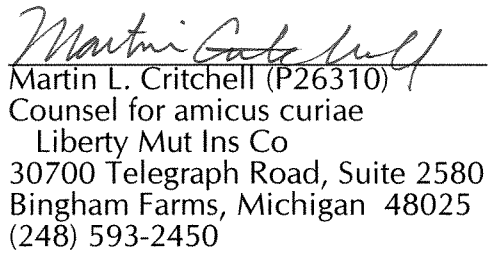 Martin Critchell
Martin L. Critchell (P26310)
Counsel for amicus curiae
Liberty Mut Ins Co
30700 Telegraph Road, Suite 2580
Bingham Farms, Michigan 48025
(248) 593-2450